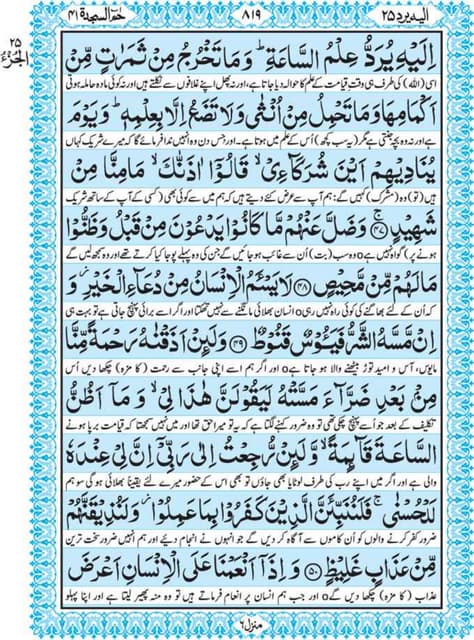 الیه یرد ۲۵
۸۱۹
حم السجدة ۴۱
الجزء ۲۵
اِلَيْهِ يُرَدُّ عِلْمُ السَّاعَةِ ؕ وَمَا تَخْرُجُ مِنْ ثَمَرٰتٍ مِّنْ
اسی (اللہ) کی طرف ہی وقتِ قیامت کے علم کا حوالہ دیا جاتا ہے، اور نہ پھل اپنے غلافوں سے نکلتے ہیں اور نہ کوئی مادہ حاملہ ہوتی
اَكْمَامِهَا وَمَا تَحْمِلُ مِنْ اُنْثٰى وَلَا تَضَعُ اِلَّا بِعِلْمِهٖ ؕ وَيَوْمَ
ہے اور نہ وہ بچہ جنتی ہے مگر (یہ سب کچھ) اُس کے علم میں ہوتا ہے۔ اور جس دن وہ انہیں ندا فرمائے گا کہ میرے شریک کہاں
يُنَادِيْهِمْ اَيْنَ شُرَكَآءِیْ ۙ قَالُوْۤا اٰذَنّٰكَ ۙ مَامِنَّا مِنْ
ہیں (تو) وہ (مشرک) کہیں گے: ہم آپ سے عرض کئے دیتے ہیں کہ ہم میں سے کوئی بھی (کسی کے آپ کے ساتھ شریک
شَهِيْدٍ ۚ ﴿۴۷﴾ وَضَلَّ عَنْهُمْ مَّا كَانُوْا يَدْعُوْنَ مِنْ قَبْلُ وَظَنُّوْا
ہونے پر) گواہ نہیں ہے o وہ سب (بت) اُن سے غائب ہو جائیں گے جن کی وہ پہلے پوجا کیا کرتے تھے اور وہ سمجھ لیں گے
مَا لَهُمْ مِّنْ مَّحِيْصٍ ﴿۴۸﴾ لَا يَسْـَٔمُ الْاِنْسَانُ مِنْ دُعَآءِ الْخَيْرِ ؗ وَ
کہ اُن کے لئے بھاگنے کی کوئی راہ نہیں رہی o انسان بھلائی مانگنے سے نہیں تھکتا اور اگر اسے برائی پہنچ جاتی ہے تو بہت ہی
اِنْ مَّسَّهُ الشَّرُّ فَيَـُٔوْسٌ قَنُوْطٌ ﴿۴۹﴾ وَلَئِنْ اَذَقْنٰهُ رَحْمَةً مِّنَّا
مایوس، آس و امید توڑ بیٹھنے والا ہو جاتا ہے o اور اگر ہم اسے اپنی جانب سے رحمت (کا مزہ) چکھا دیں اُس
مِنْۢ بَعْدِ ضَرَّآءَ مَسَّتْهُ لَيَقُوْلَنَّ هٰذَا لِیْ ۙ وَمَاۤ اَظُنُّ
تکلیف کے بعد جو اُسے پہنچ چکی تھی تو وہ ضرور کہنے لگتا ہے کہ یہ تو میرا حق تھا اور میں نہیں سمجھتا کہ قیامت برپا ہونے
السَّاعَةَ قَآئِمَةً ۙ وَّلَئِنْ رُّجِعْتُ اِلٰى رَبِّیْۤ اِنَّ لِیْ عِنْدَهٗ
والی ہے اور اگر میں اپنے رب کی طرف لوٹایا بھی جاؤں تو بھی اُس کے حضور میرے لئے یقیناً بھلائی ہوگی سو ہم
لَلْحُسْنٰى ۚ فَلَنُنَبِّئَنَّ الَّذِيْنَ كَفَرُوْا بِمَا عَمِلُوْا ؗ وَلَنُذِيْقَنَّهُمْ
ضرور کفر کرنے والوں کو اُن کاموں سے آگاہ کر دیں گے جو انہوں نے انجام دیئے اور ہم انہیں ضرور سخت ترین
مِّنْ عَذَابٍ غَلِيْظٍ ﴿۵۰﴾ وَ اِذَاۤ اَنْعَمْنَا عَلَى الْاِنْسَانِ اَعْرَضَ
عذاب (کا مزہ) چکھا دیں گے o اور جب ہم انسان پر انعام فرماتے ہیں تو وہ منہ پھیر لیتا ہے اور اپنا پہلو
منزل ۶